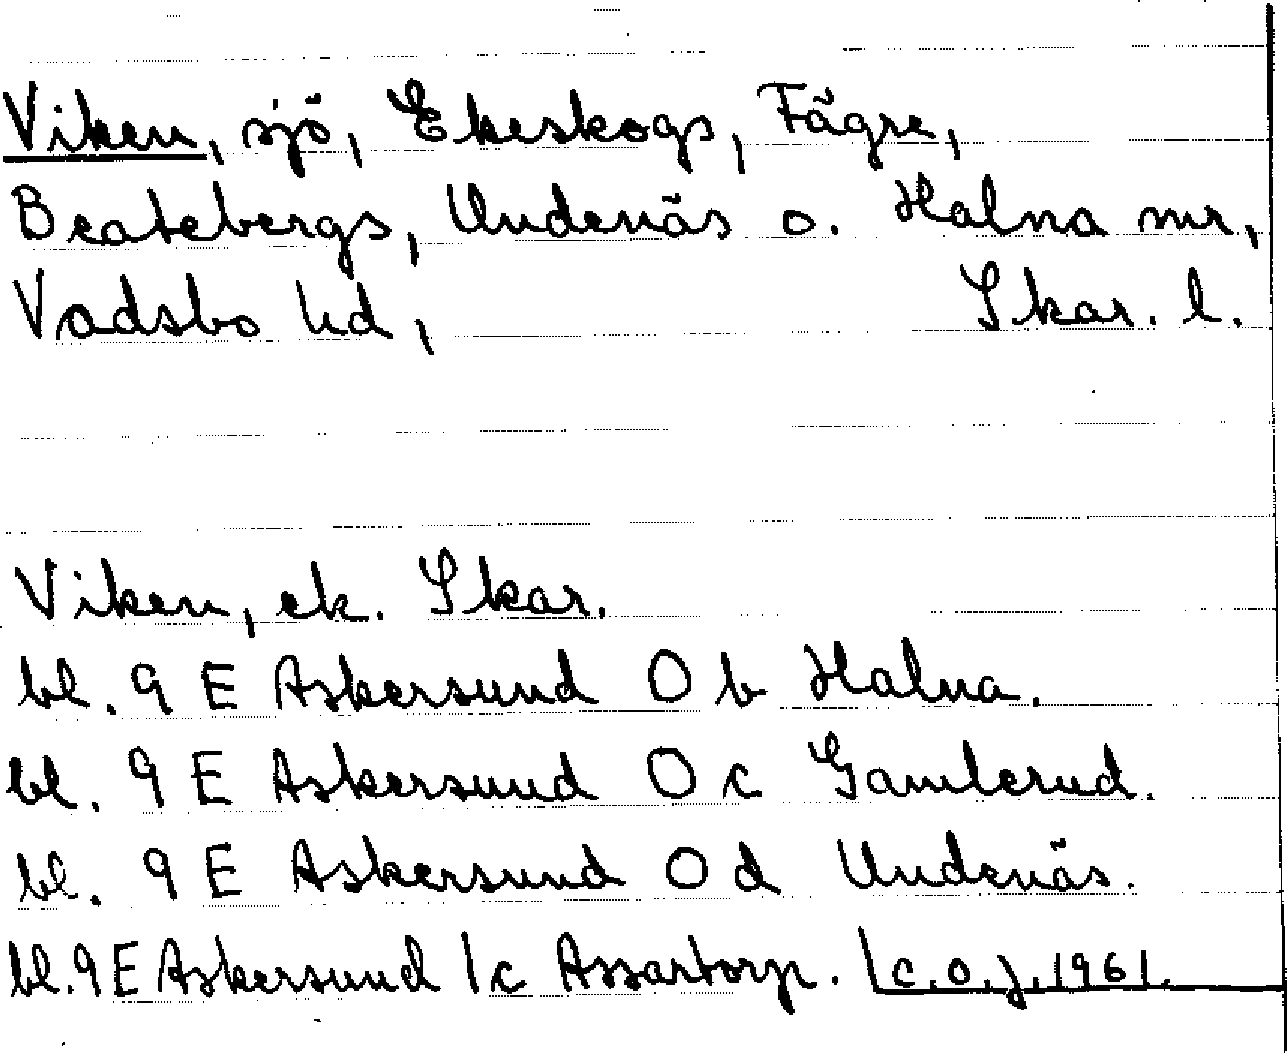 Viken, sjö, Ekeskogs, Fägre,
Beatebergs, Undenäs o. Halna snr,
Vadsbo hd, Skar. l.
Viken, ek. Skar.
bl. 9 E Askersund 0 b Halna.
bl. 9 E Askersund 0 c Gamlerud.
bl. 9 E Askersund 0 d Undenäs.
bl. 9 E Askersund 1 c Assartorp. C.O.J. 1961.